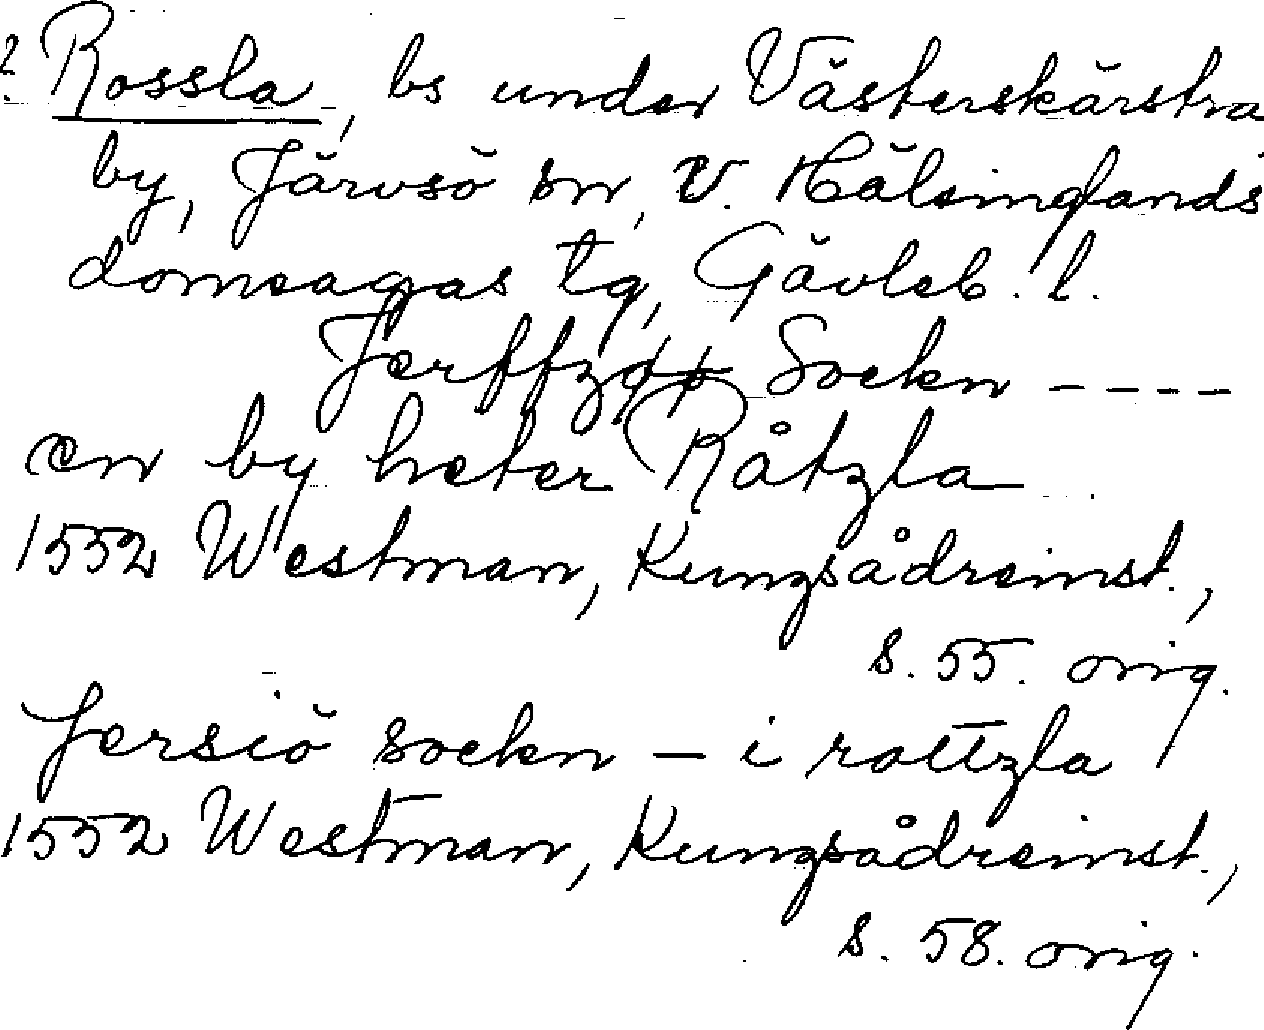 ? Rossla, bs under Västerskärstra
by, Järvsö sn, V. Hälsinglands
domsagas tg, Gävleb. l.
Jerffzøø Sockn ----
en by heter Råtzla
1552 Westman, Kungsådreinst.,
s. 55. orig.
Jersiö sockn – i rottzla
1552 Westman, Kungsådreinst.,
s. 58. orig.